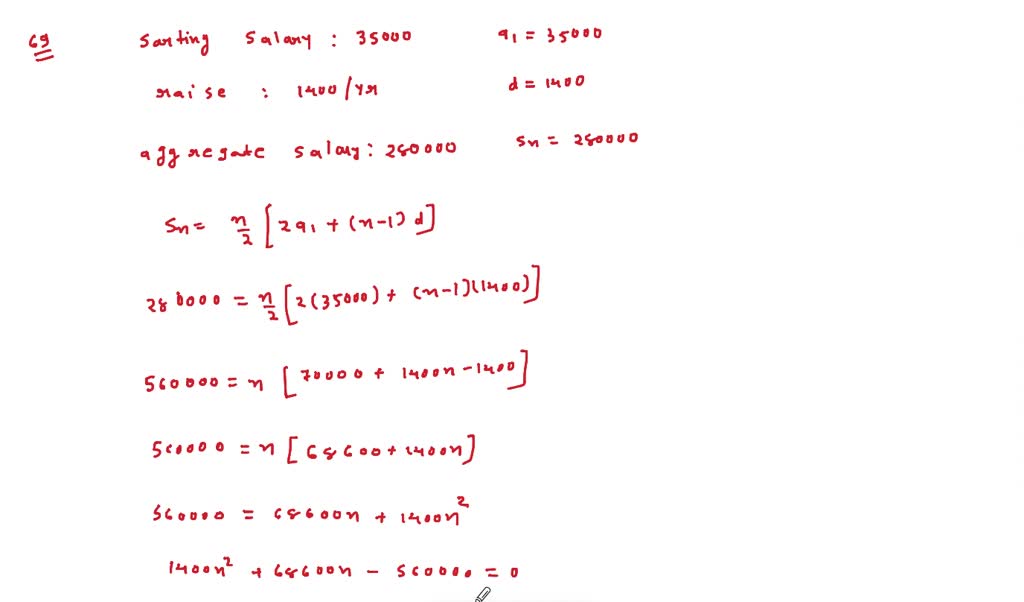 69 Sarting Salary : 35000 a₁ = 35000
raise : 1400/yr d = 1400
aggregate salary: 280000 Sn = 280000
Sn = n/2 [2a₁ + (n-1) d]
280000 = n/2 [2(35000) + (n-1)(1400)]
560000 = n [70000 + 1400n - 1400]
560000 = n [68600 + 1400n]
560000 = 68600n + 1400n²
1400n² + 68600n - 560000 = 0